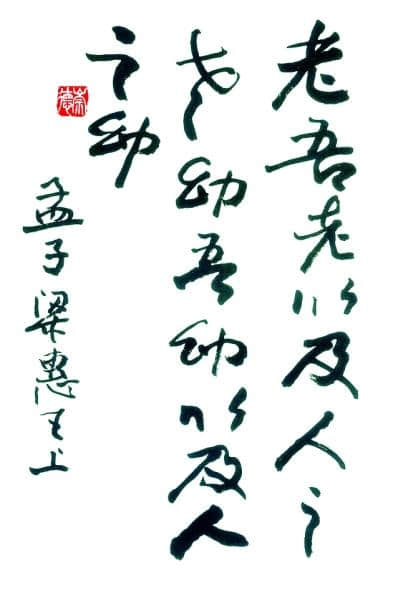 老吾老以及人之
老幼吾幼以及人
之幼
孟子梁惠王上
崇德